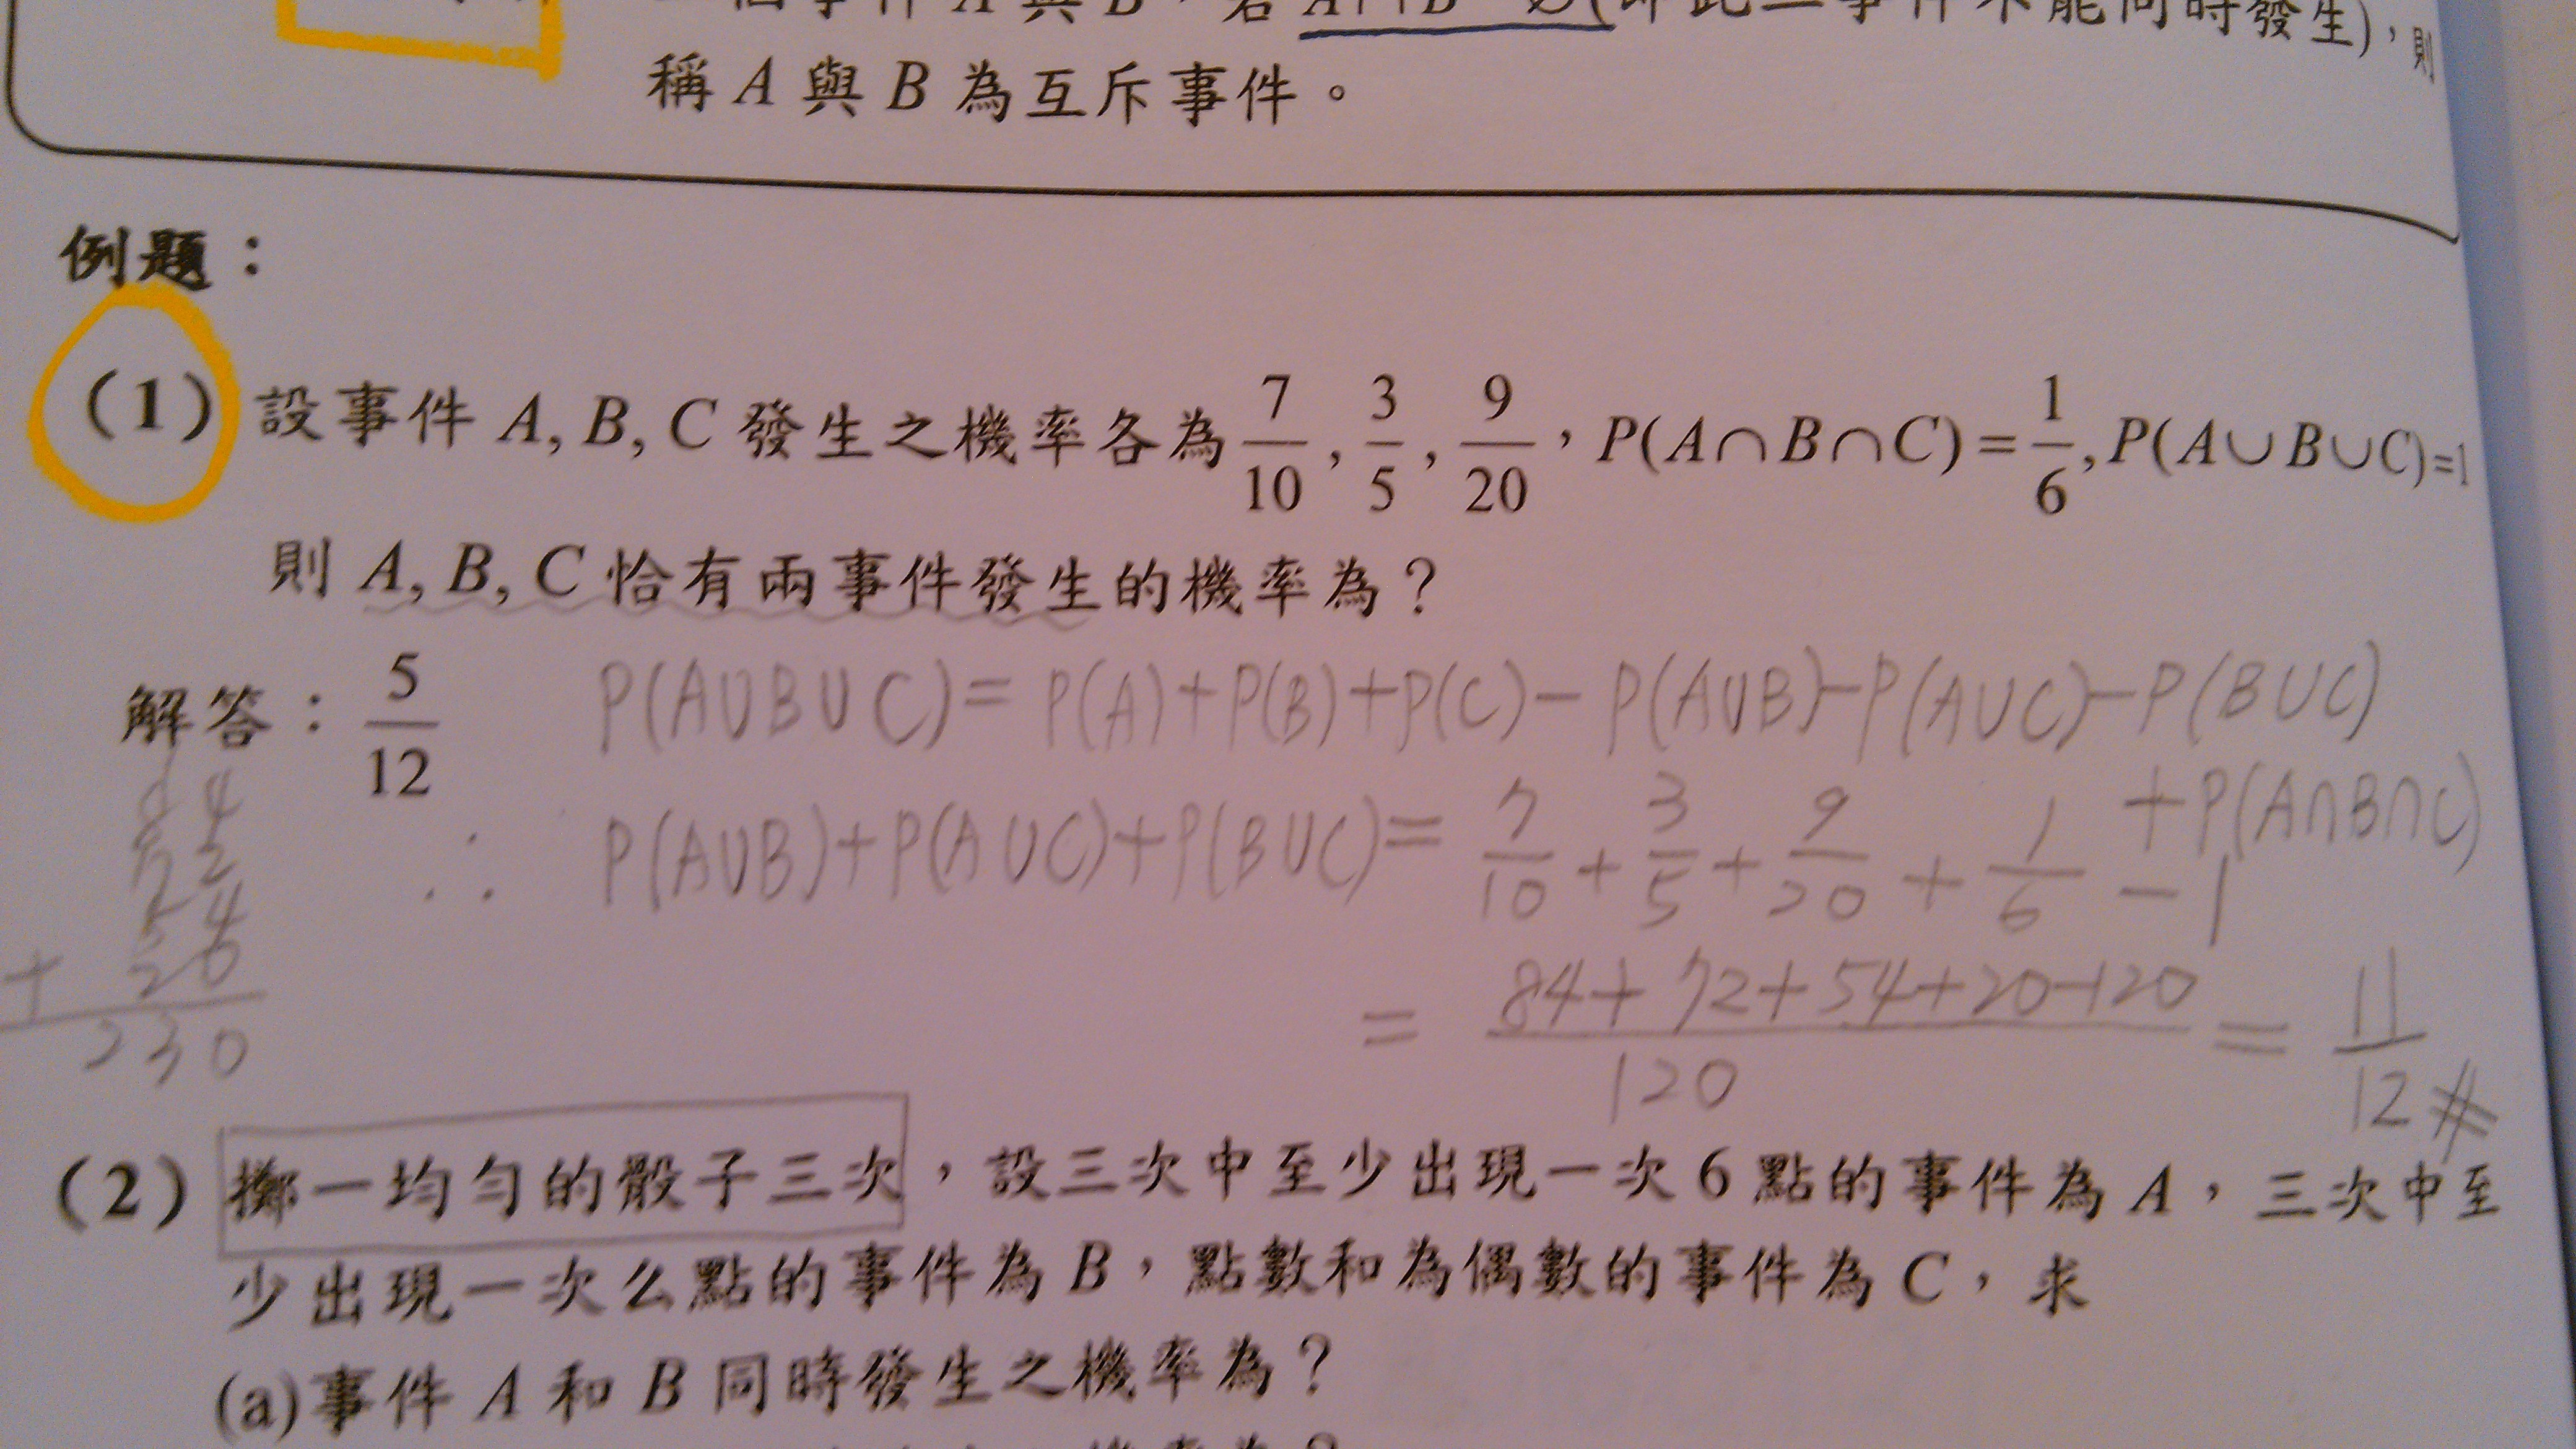 個事件 A 與 B,若 A∩B=∅(即此二事件不能同時發生),則
稱 A 與 B 為互斥事件。
例題:
(1) 設事件 A, B, C 發生之機率各為 7/10, 3/5, 9/20,P(A∩B∩C)=1/6, P(A∪B∪C)=1
則 A, B, C 恰有兩事件發生的機率為?
解答: 5/12
P(A∪B∪C)= P(A)+P(B)+P(C)- P(A∪B)-P(A∪C)-P(B∪C)
+P(A∩B∩C)
∴ P(A∪B)+P(A∪C)+P(B∪C)= 7/10 + 3/5 + 9/20 + 1/6 - 1
= 84+72+54+20-120/120 = 11/12 #
84
72
54
+ 20
230
(2) 擲一均勻的骰子三次,設三次中至少出現一次 6 點的事件為 A,三次中至
少出現一次么點的事件為 B,點數和為偶數的事件為 C,求
(a)事件 A 和 B 同時發生之機率為?